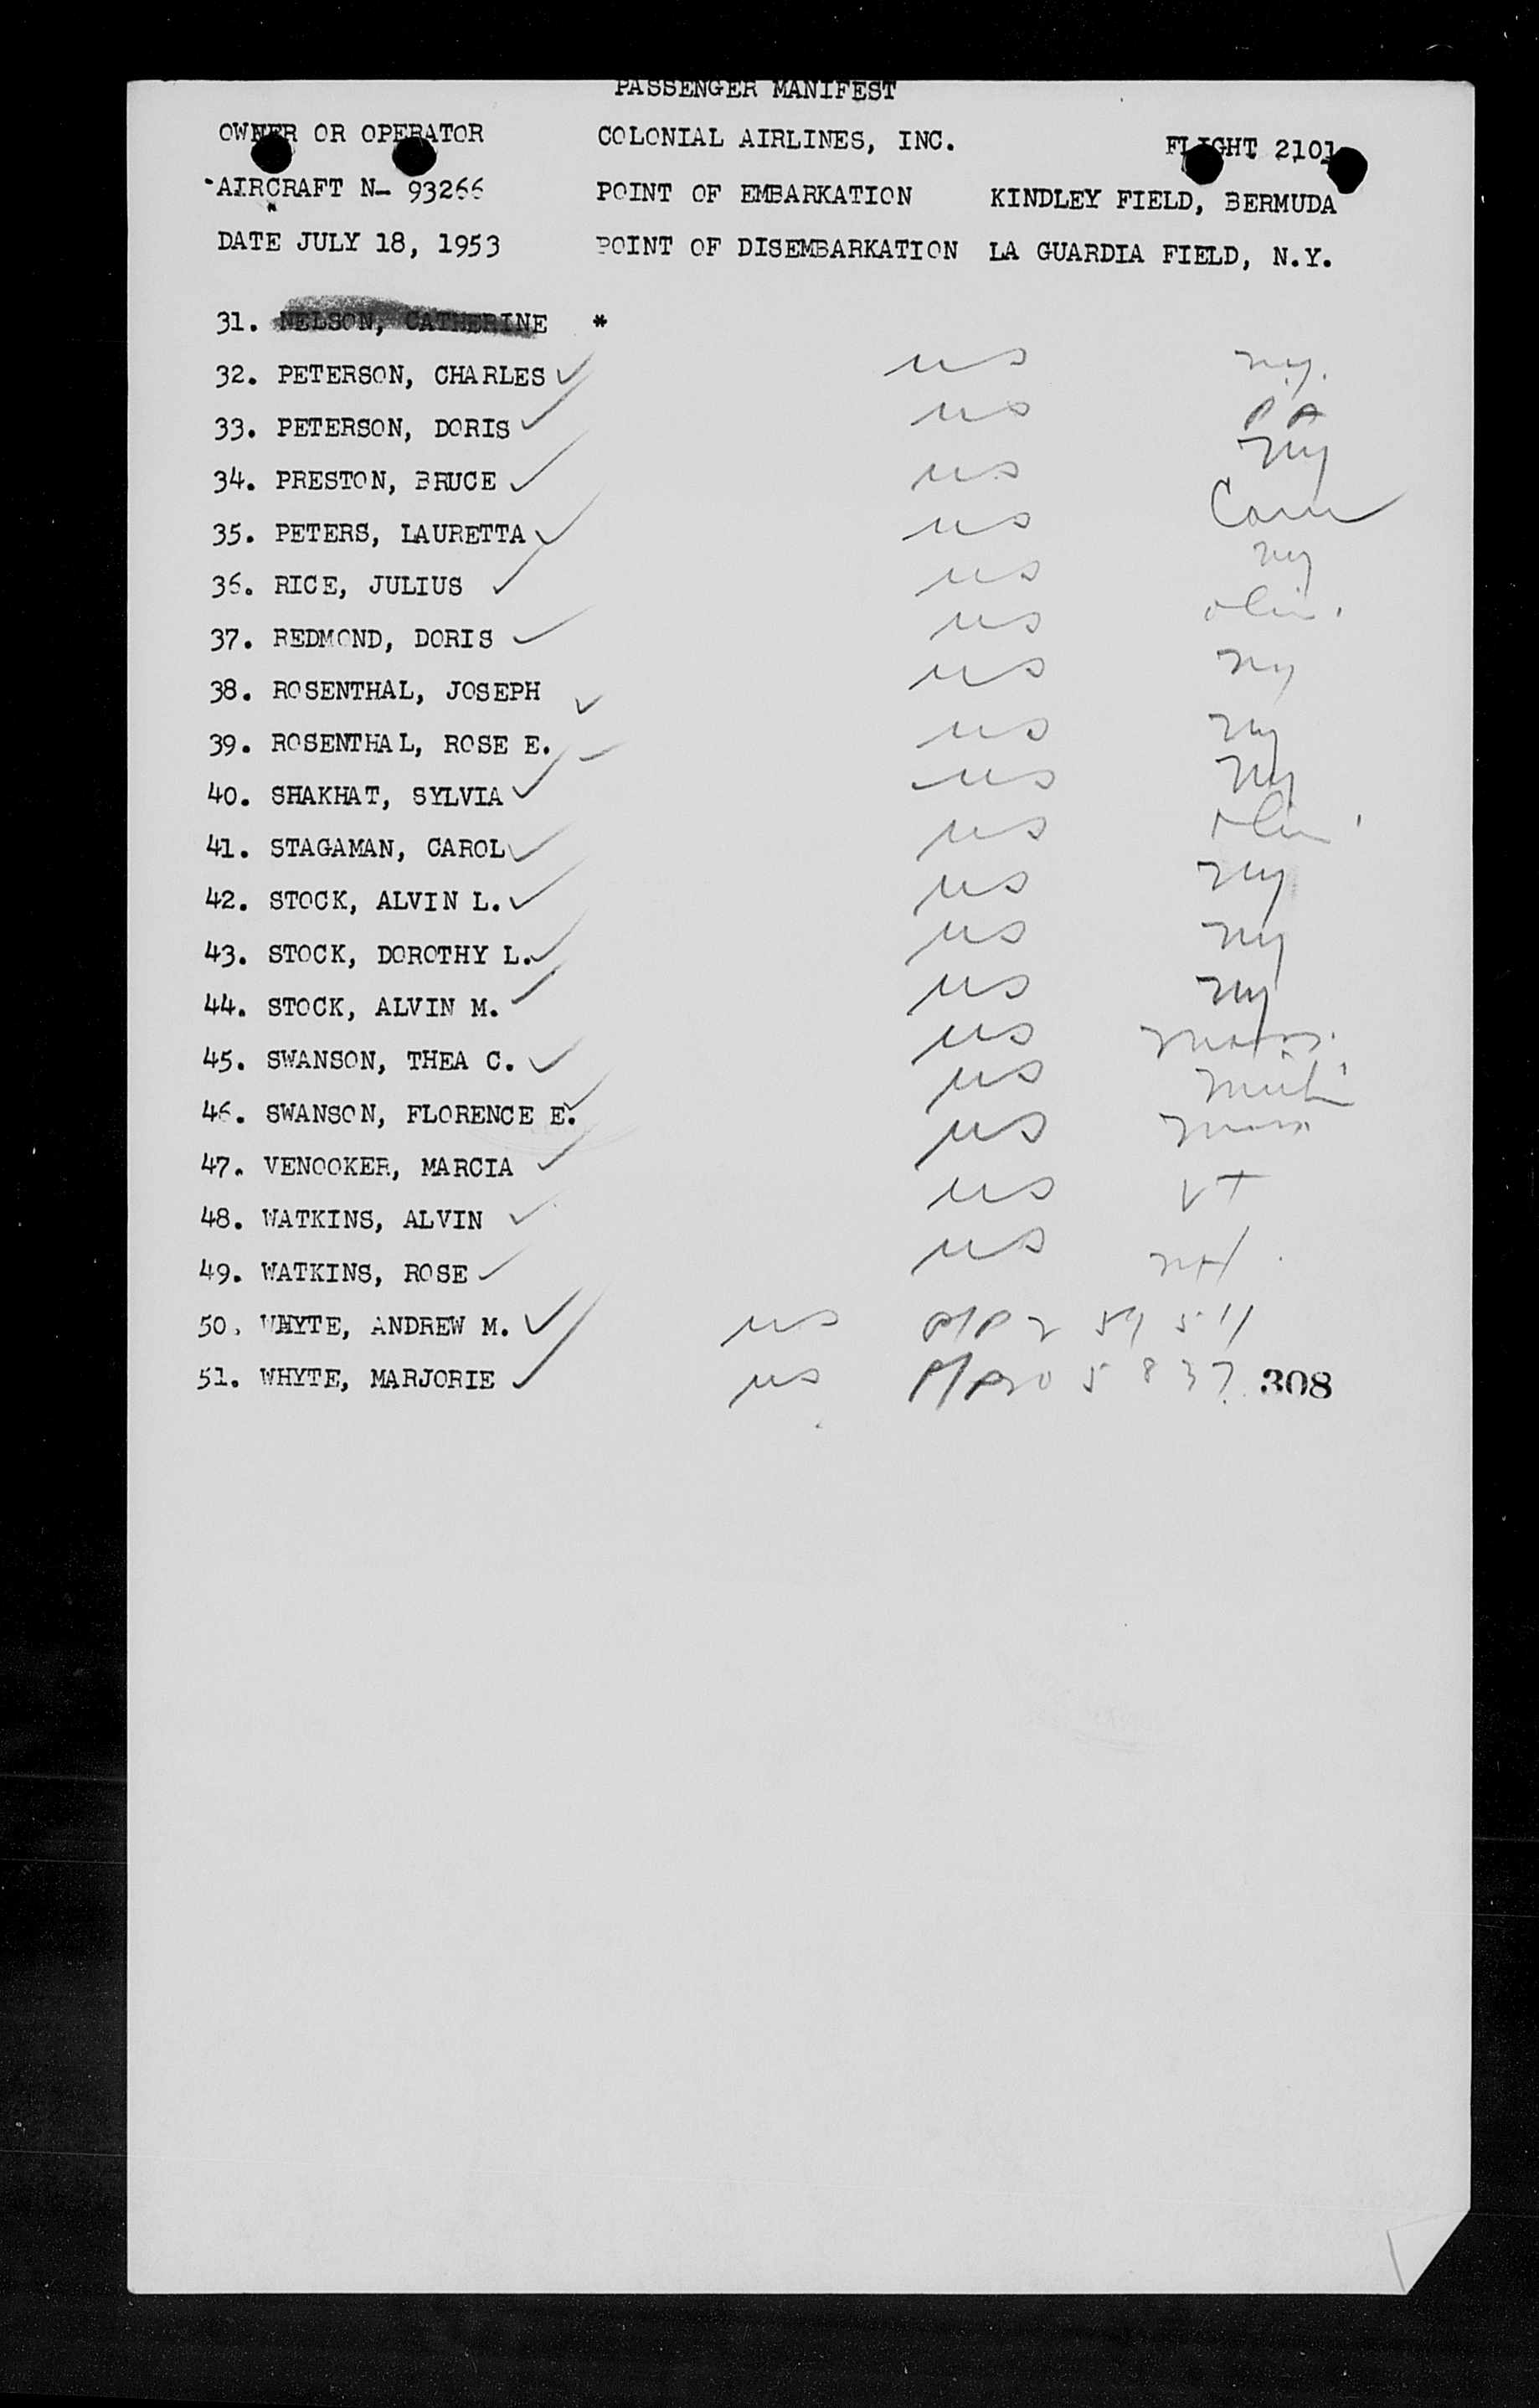 PASSENGER MANIFEST
OWNER OR OPERATOR COLONIAL AIRLINES, INC. FLIGHT 2101
AIRCRAFT N- 93266 POINT OF EMBARKATION KINDLEY FIELD, BERMUDA
DATE JULY 18, 1953 POINT OF DISEMBARKATION LA GUARDIA FIELD, N.Y.
31. NELSON, CATHERINE *
32. PETERSON, CHARLES ✓ us ny.
33. PETERSON, DORIS ✓ us PA
34. PRESTON, BRUCE ✓ us ny
35. PETERS, LAURETTA ✓ us Conn
36. RICE, JULIUS ✓ us ny
37. REDMOND, DORIS ✓ us
38. ROSENTHAL, JOSEPH ✓ us ny
39. ROSENTHAL, ROSE E. ✓ us ny
40. SHAKHAT, SYLVIA ✓ us ny
41. STAGAMAN, CAROL ✓ us
42. STOCK, ALVIN L. ✓ us ny
43. STOCK, DOROTHY L. ✓ us ny
44. STOCK, ALVIN M. ✓ us ny
45. SWANSON, THEA C. ✓ us mass.
46. SWANSON, FLORENCE E. ✓ us mich
47. VENOOKER, MARCIA ✓ us mass
48. WATKINS, ALVIN ✓ us VT
49. WATKINS, ROSE ✓ us NH.
50. WHYTE, ANDREW M. ✓ us
51. WHYTE, MARJORIE ✓ us 308